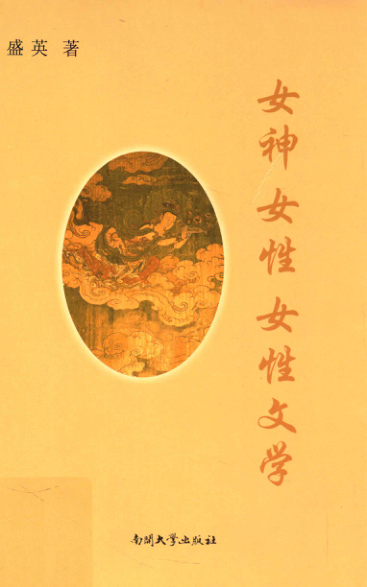 盛英 著
女神 女性 女性文学
南開大学出版社